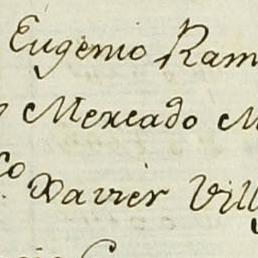 Eugenio Ram
Mercado M
co Xavier Vill